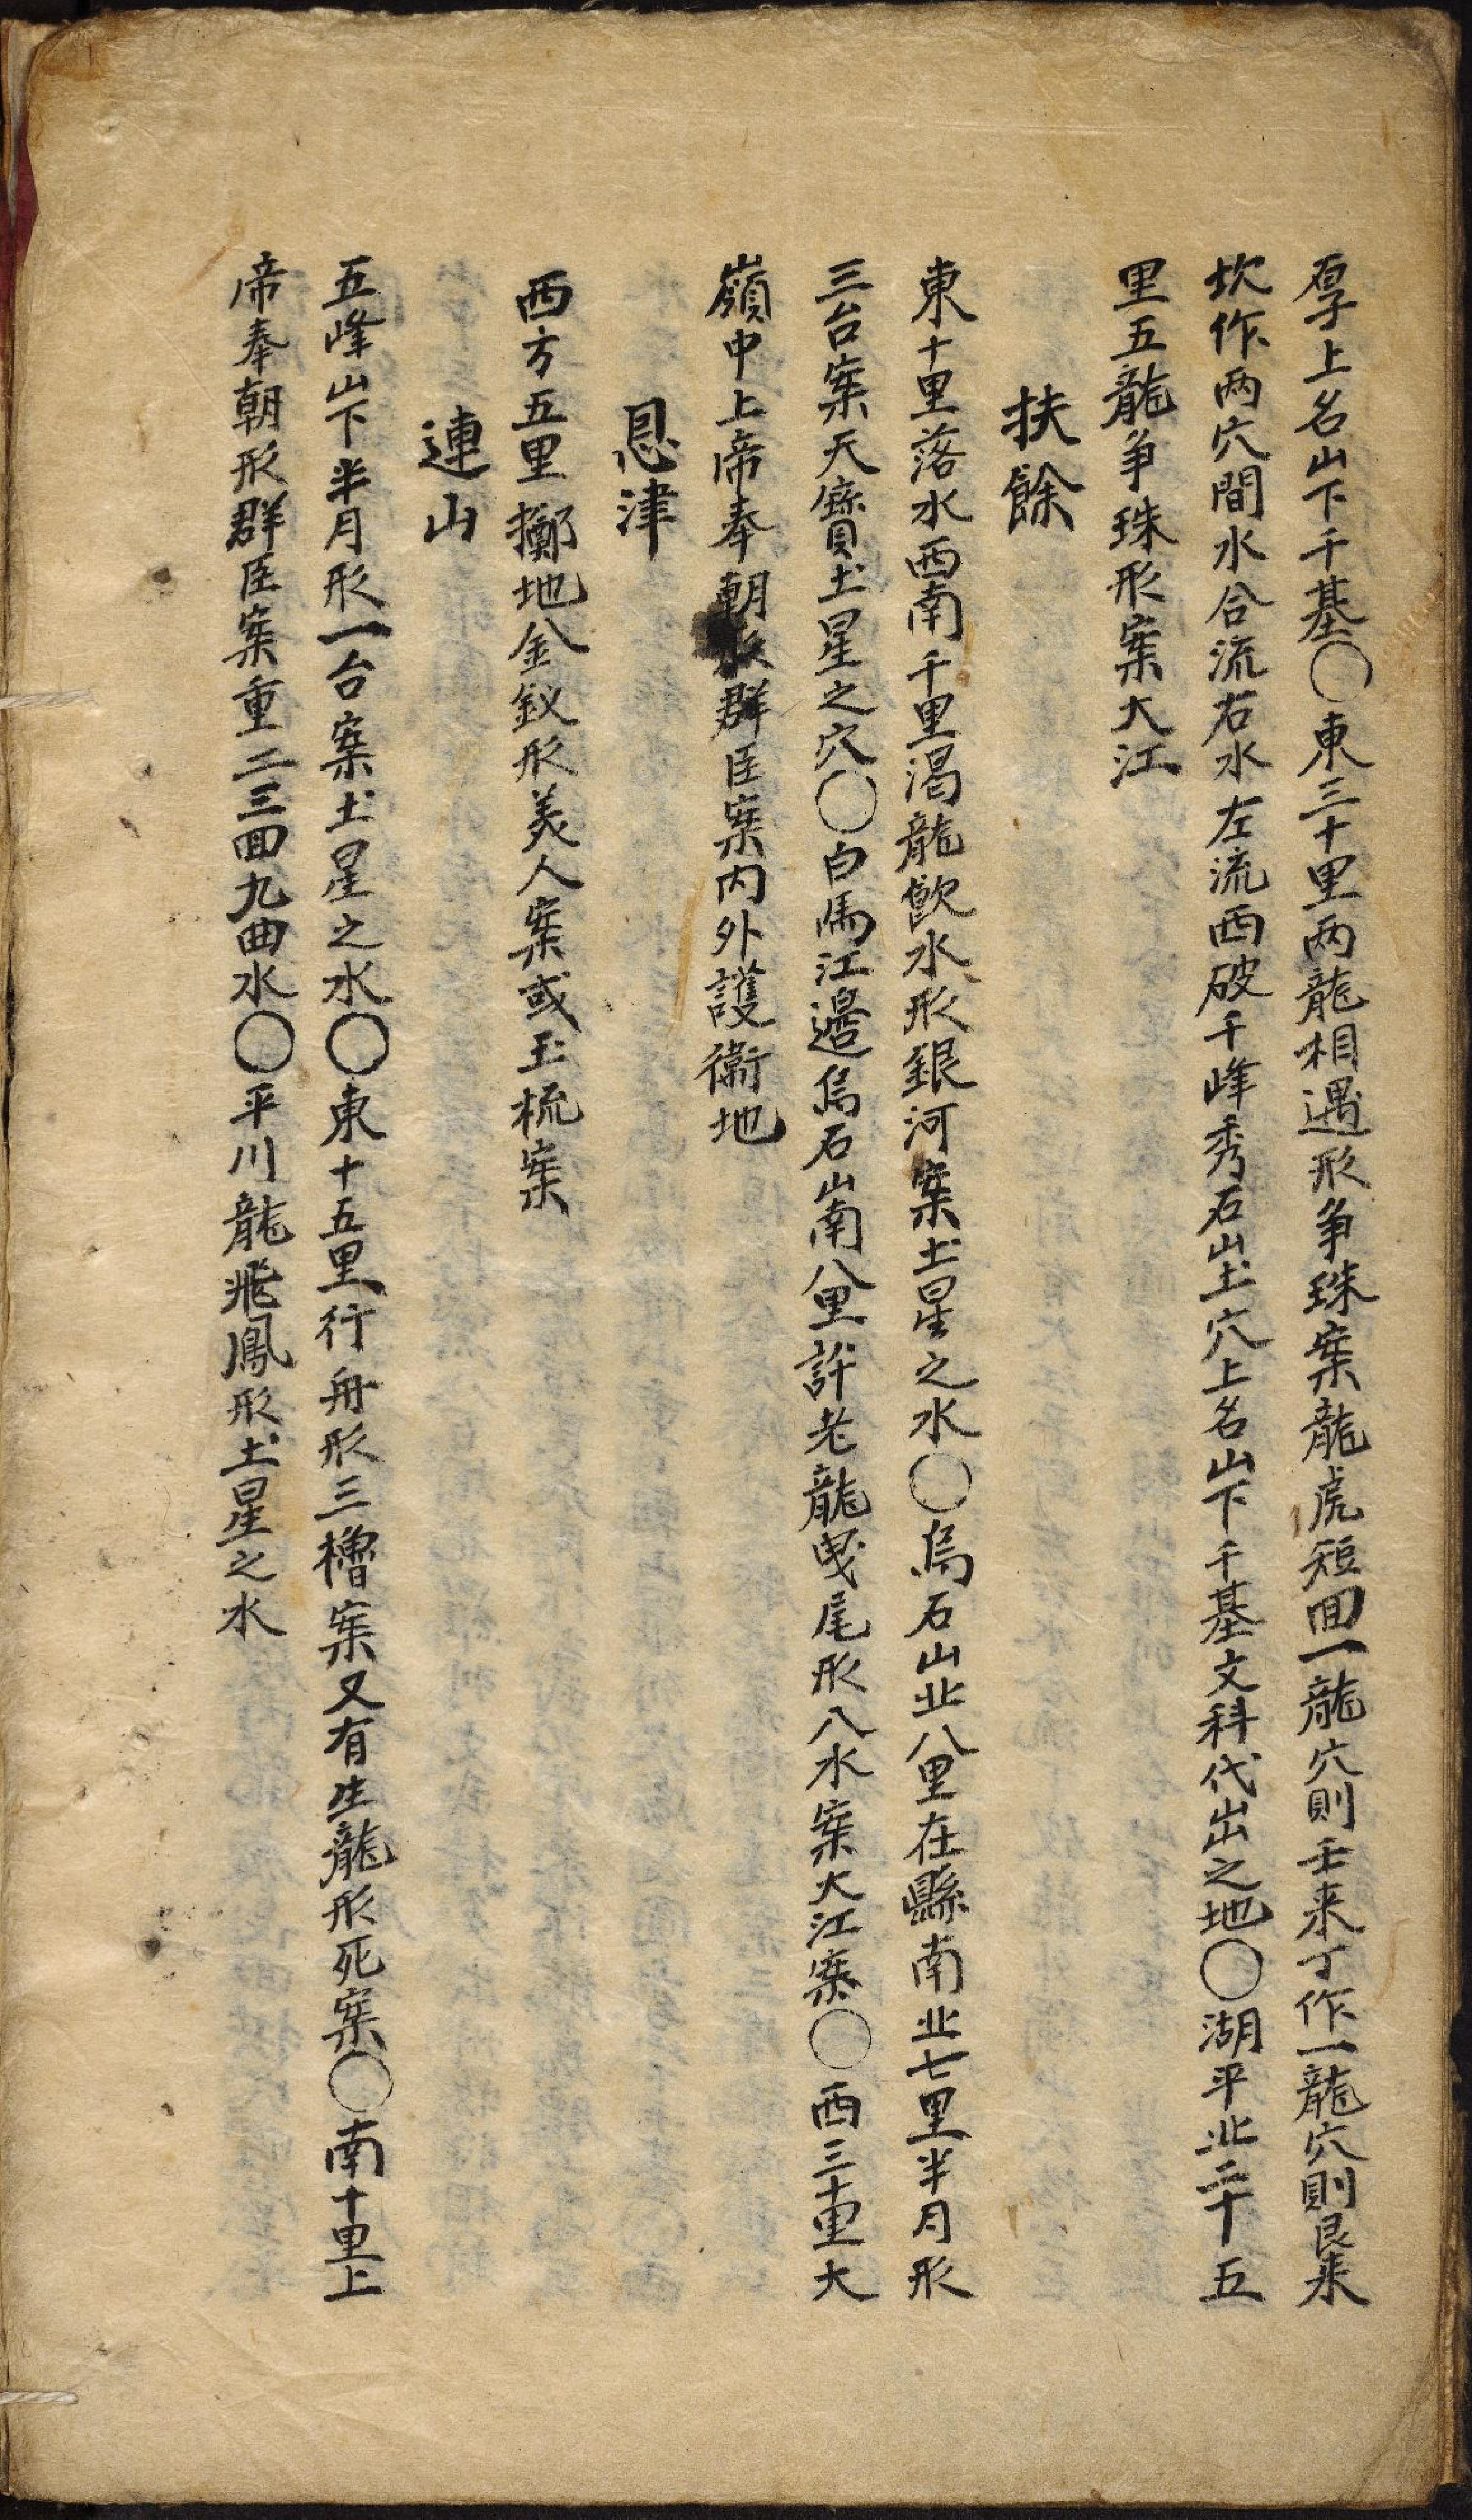 厚上名山下千基○東三十里两龍相遇形争珠案龍虎短回一龍穴則壬来丁作一龍穴則艮来
坎作两穴間水合流右水左流西破千峰秀石山土穴上名山下千基文科代出之地○湖平北二十五
里五龍争珠形案大江
扶餘
東十里落水西南千里渴龍飮水形銀河案土星之水○烏石山北八里在縣南北七里半月形
三台案天寶土星之穴○白馬江邊烏石山南八里許老龍曳尾形八水案大江案○西三十里大
嶺中上帝奉朝形群臣案内外護衛地
恩津
西方五里擲地金釵形美人案或玉梳案
連山
五峰山下半月形一台案土星之水○東十五里行舟形三櫓案又有生龍形死案○南十里上
帝奉朝形群臣案重二三回九曲水○平川龍飛鳳形土星之水